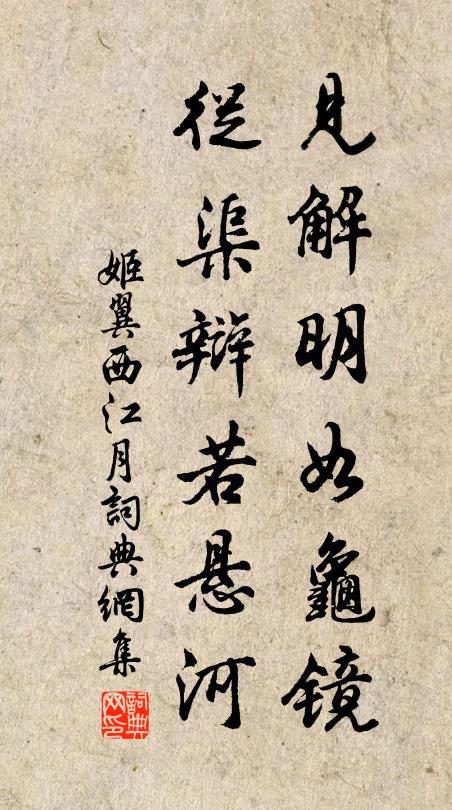 見解明如龜镜
從渠辯若悬河
姬翼西江月詞典網集
詞典网印